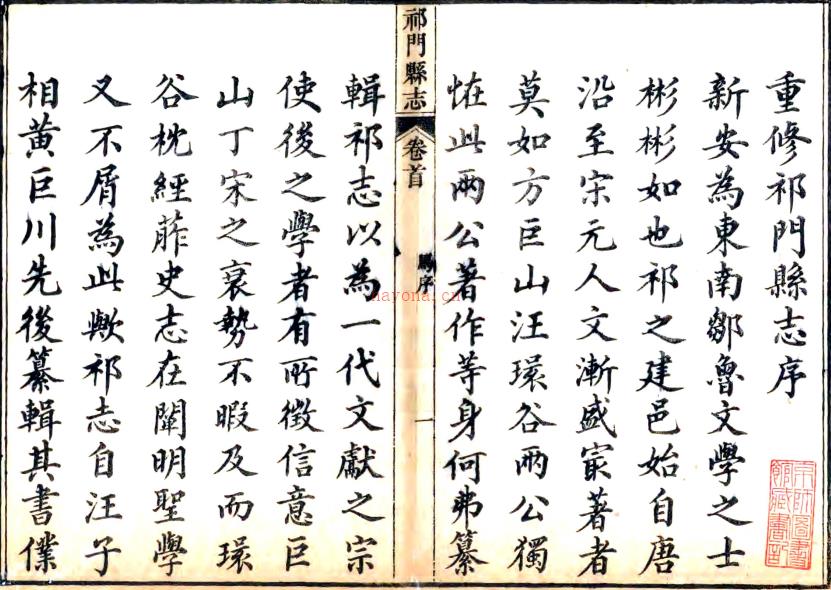 重修祁門縣志序
新安為東南鄒魯文學之士
彬彬如也祁之建邑始自唐
沿至宋元人文漸盛㝡著者
莫如方巨山汪環谷兩公獨
恠此兩公著作等身何弗纂
祁門縣志
卷首
序
一
輯祁志以為一代文獻之宗
使後之學者有所徵信意巨
山丁宋之衰勢不暇及而環
谷枕經葄史志在闡明聖學
又不屑為此歟祁志自汪子
相黃巨川先後纂輯其書僅
hayona.cn